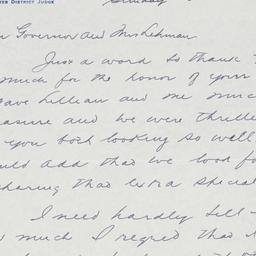 ter District Judge
Sunday
n Governor and Mrs Lehman
Just a word to thank
much for the honor of your
ave Lillian and me much
easure and we were thrilled
you both looking so well.
uld add that we look fo
sharing that extra special
I need hardly tell
w much I regret that